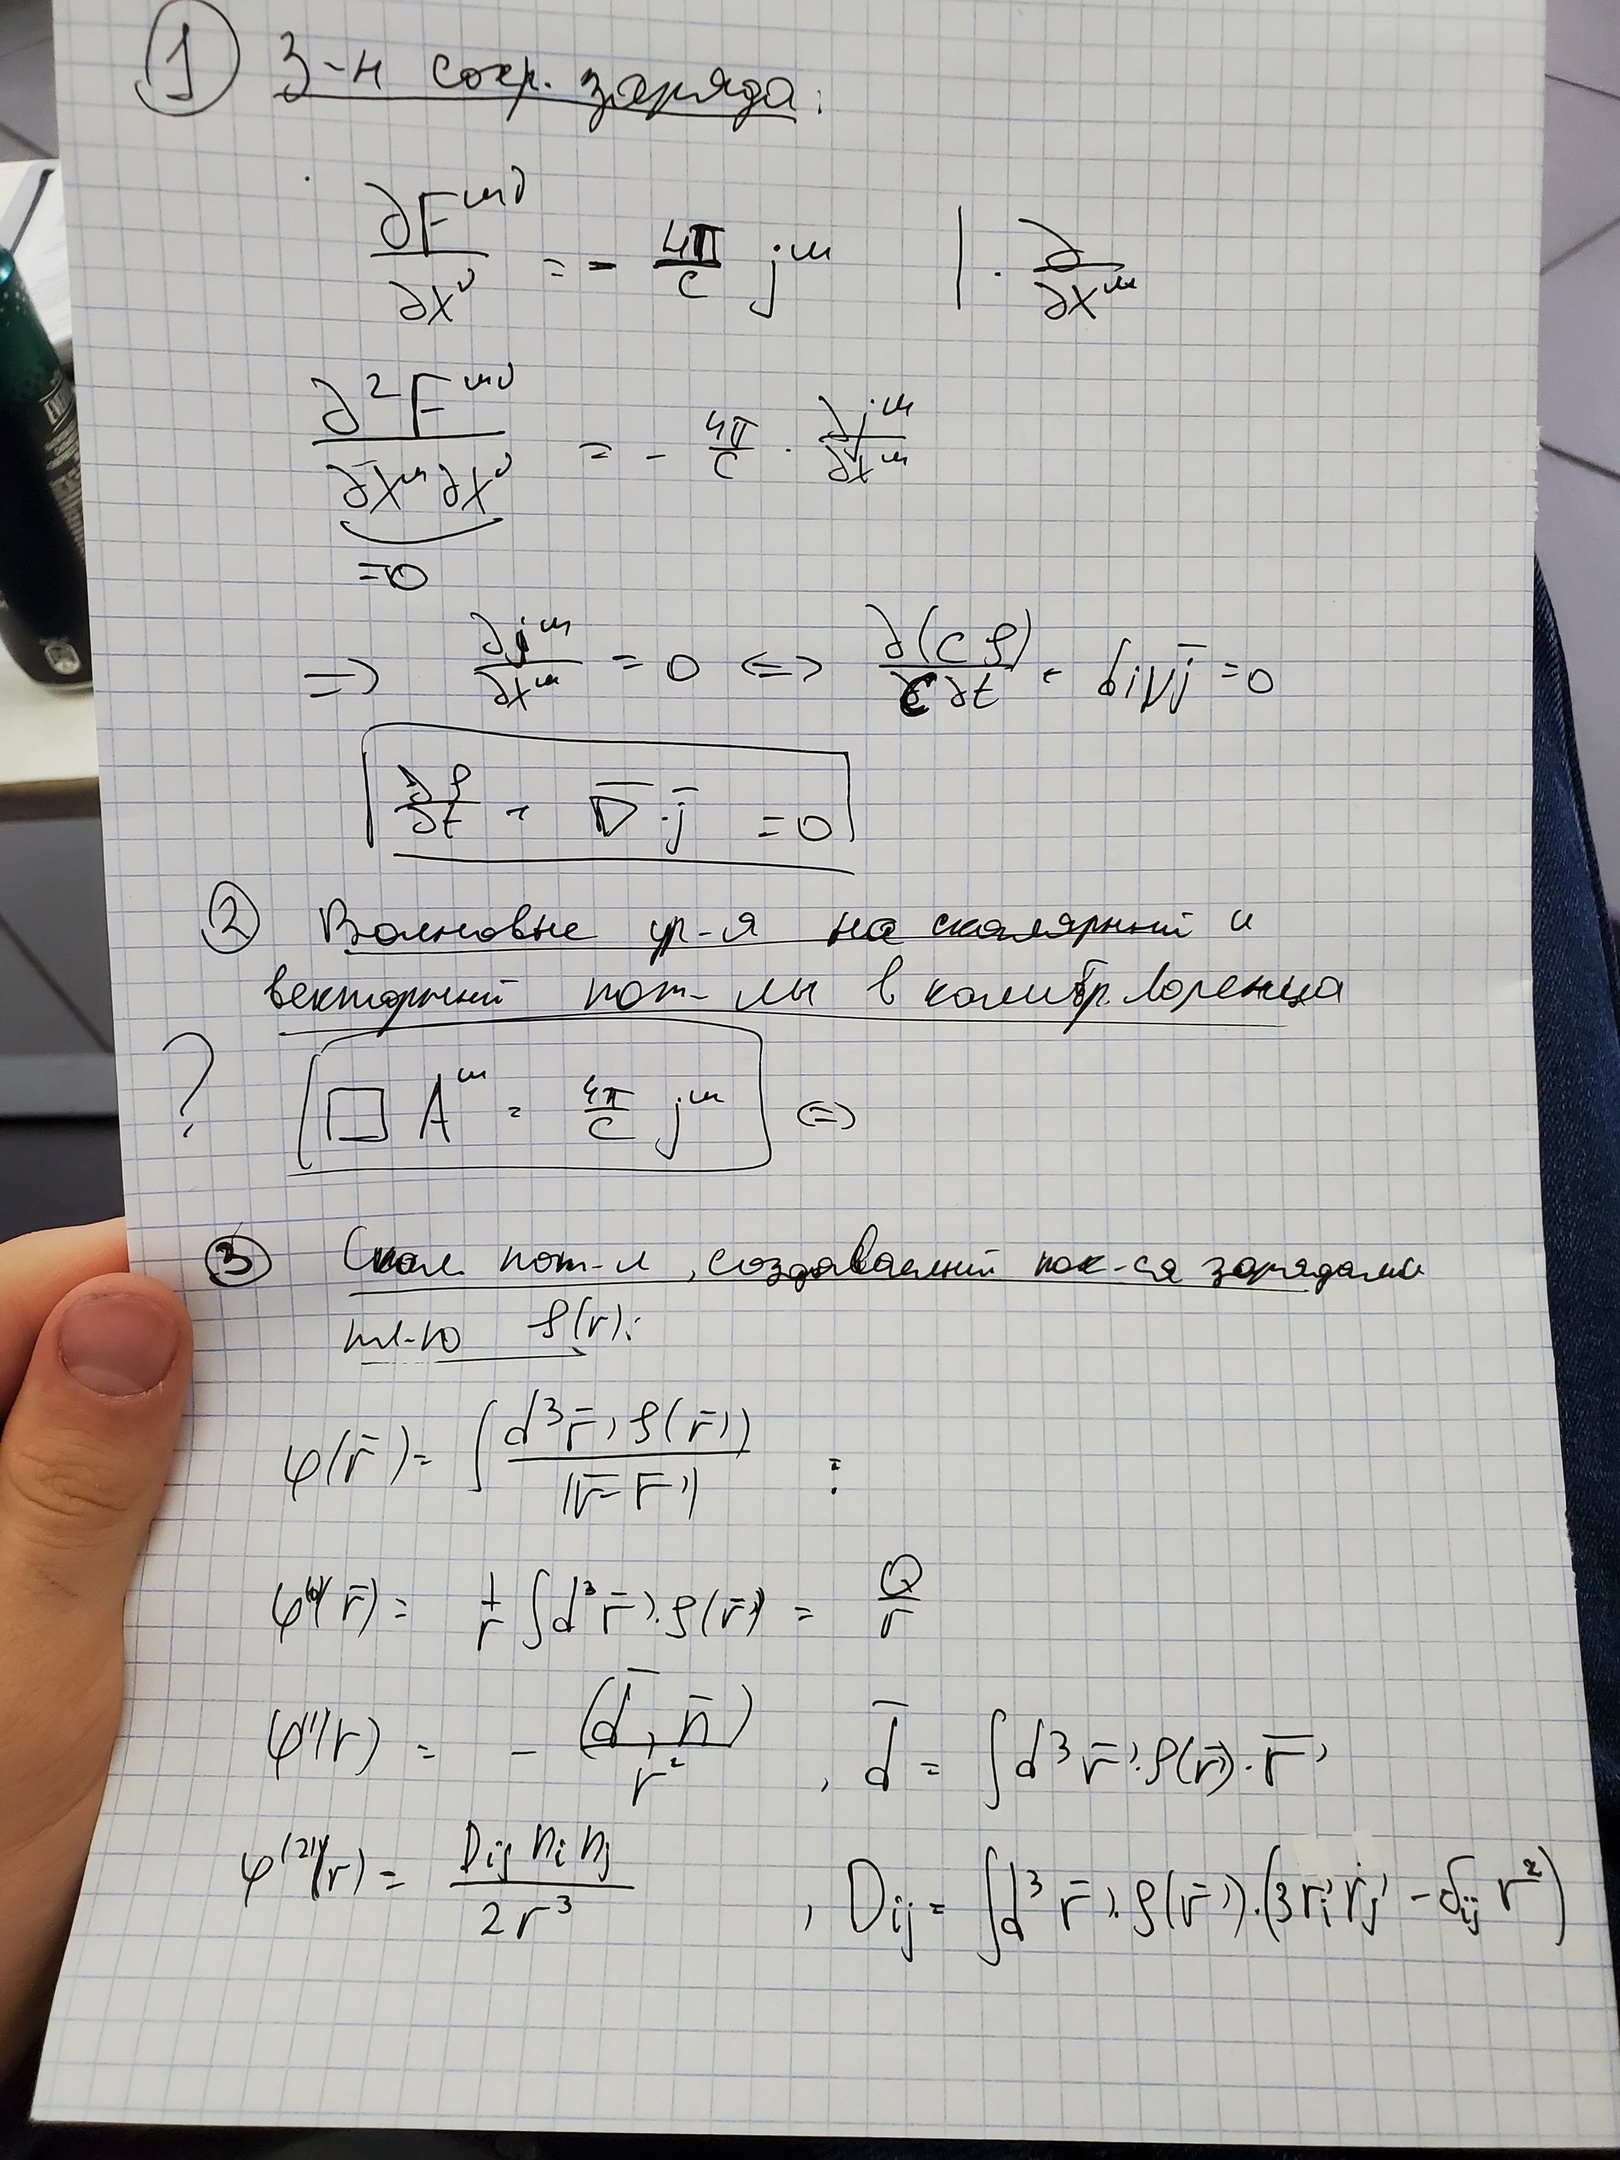 1 З-н сохр. заряда:
∂F^{μν}/∂x^ν = - 4π/c j^μ | · ∂/∂x^μ
∂²F^{μν}/∂x^μ∂x^ν = - 4π/c · ∂j^μ/∂x^μ
=0
=> ∂j^μ/∂x^μ = 0 <=> ∂(cρ)/c∂t + div j̄ = 0
∂ρ/∂t + ∇̄·j̄ = 0
2 Волновые ур-я на скалярный и
векторный пот-лы в калибр. Лоренца
? □ A^μ = 4π/c j^μ <=>
3 Скал. пот-л, создаваемый пок-ся зарядами
пл-ю ρ(r):
φ(r̄) = ∫ d³r̄' ρ(r̄')/|r̄-r̄'| :
φ^{(0)}(r̄) = 1/r ∫d³r̄'·ρ(r̄') = Q/r
φ^{(1)}(r) = - (d̄, n̄)/r² , d̄ = ∫d³r̄'·ρ(r̄)·r̄'
φ^{(2)}(r) = D_{ij} n_i n_j/2r³ , D_{ij} = ∫d³r̄'·ρ(r̄')·(3r_i'r_j' - δ_{ij} r²)